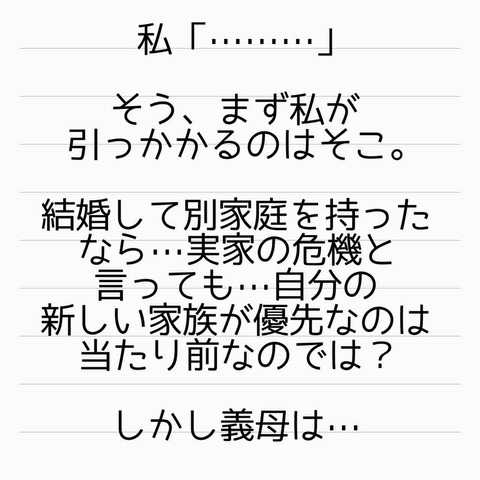 私「………」
そう、まず私が
引っかかるのはそこ。
結婚して別家庭を持った
なら…実家の危機と
言っても…自分の
新しい家族が優先なのは
当たり前なのでは？
しかし義母は…